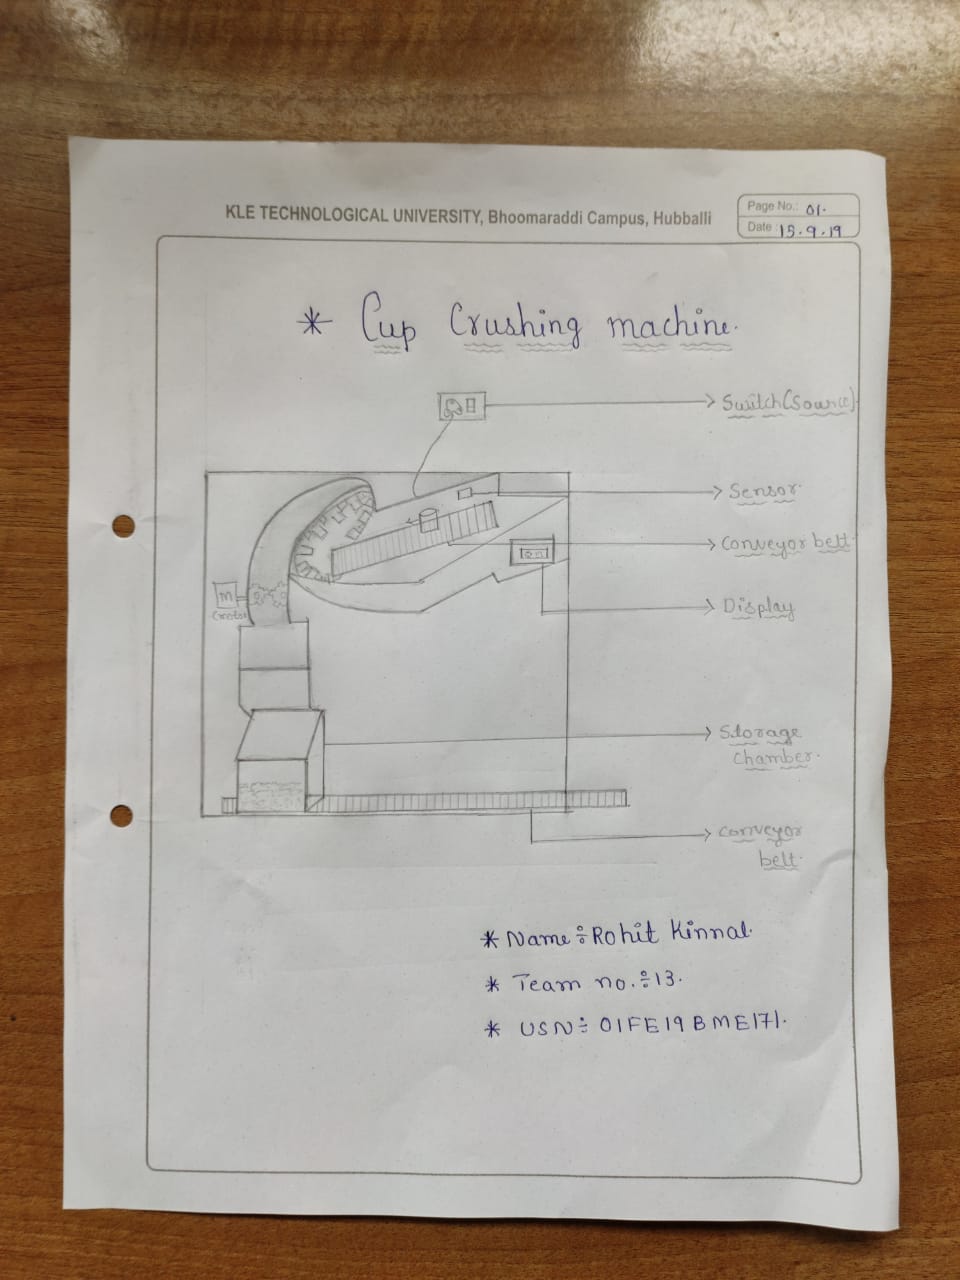 KLE TECHNOLOGICAL UNIVERSITY, Bhoomaraddi Campus, Hubballi
Page No.: 01.
Date : 15.9.19
* Cup Crushing machine.
Switch(Source)
Sensor.
Conveyor belt.
Display
M
(motor)
Storage
chamber.
conveyor
belt.
* Name ÷ Rohit Kinnal.
* Team no. ÷ 13.
* USN ÷ 01FE19BME171.